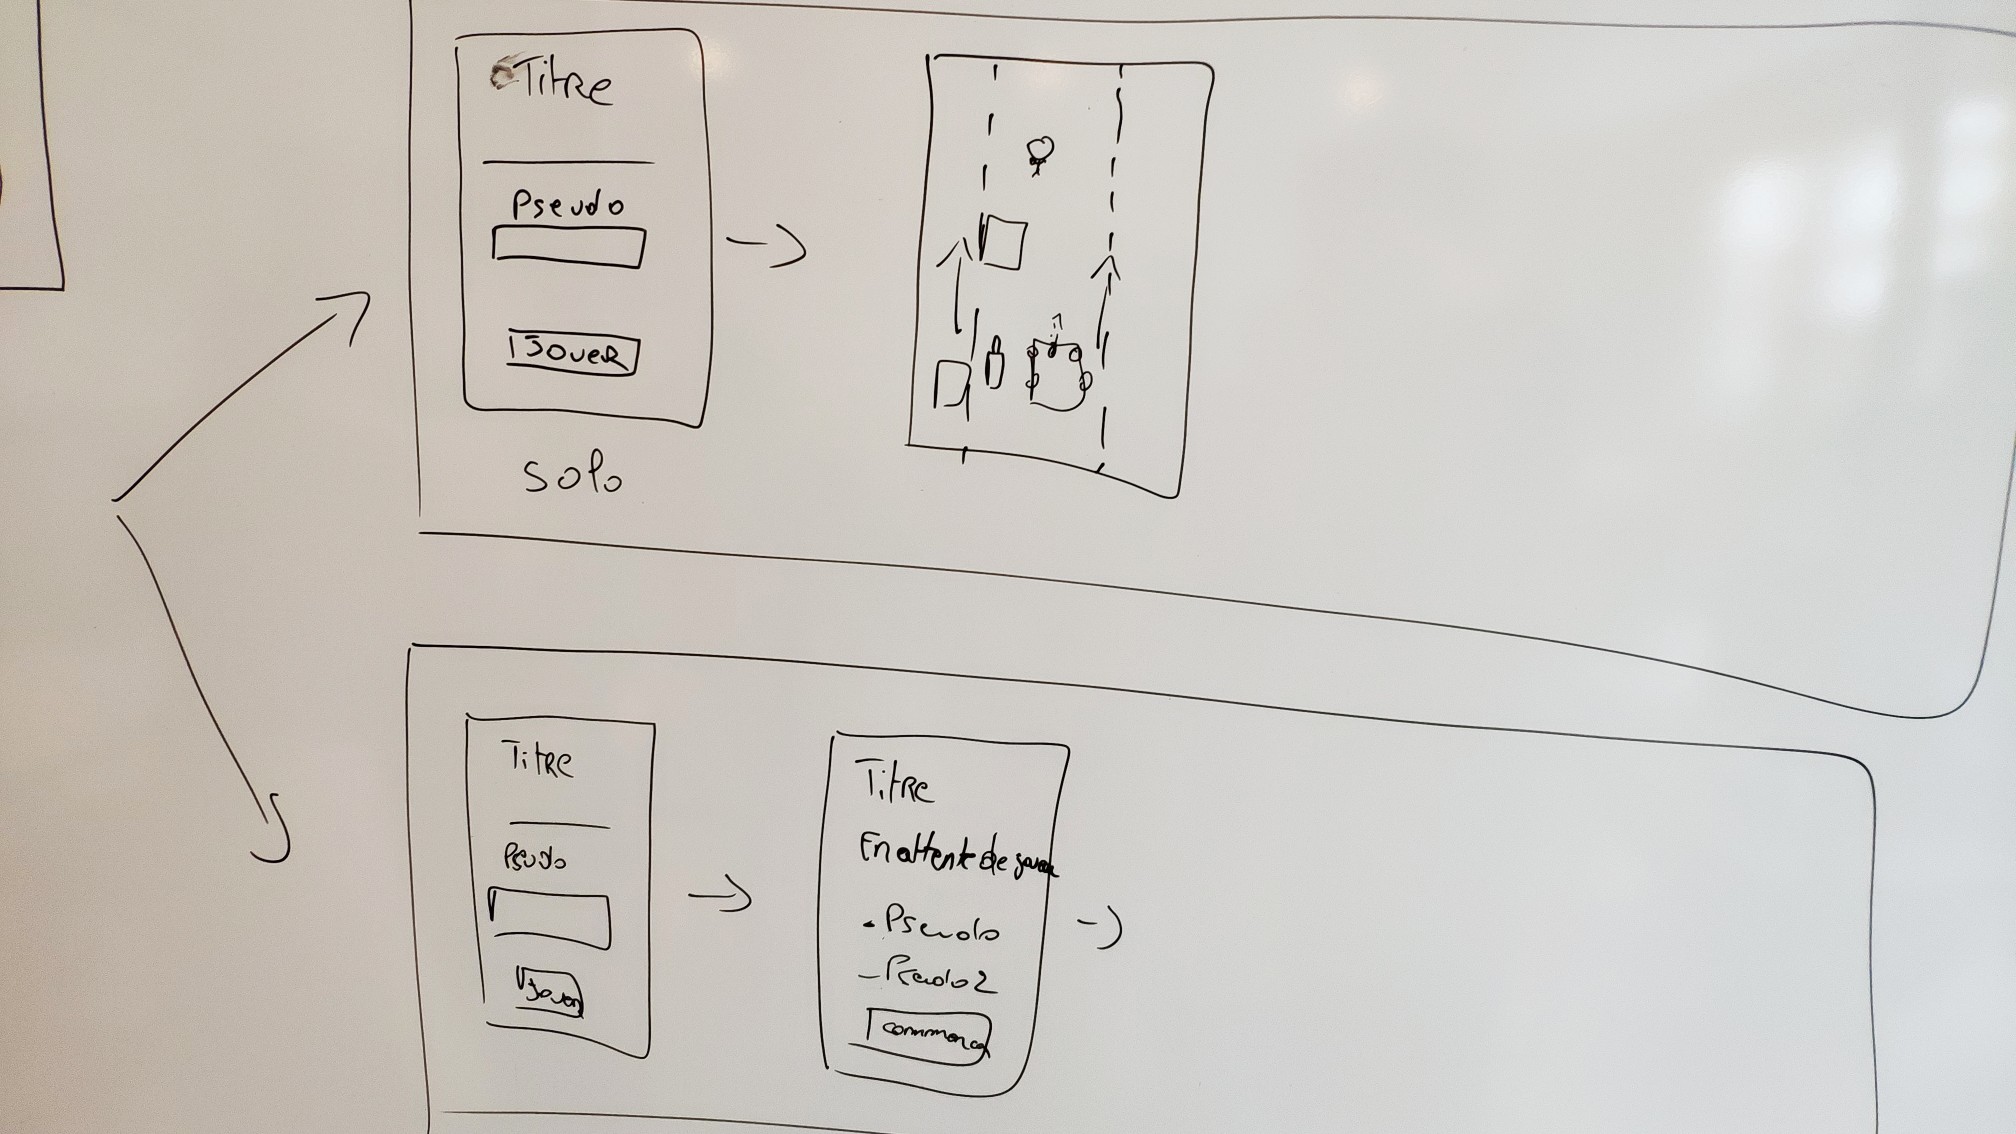 Titre
Pseudo
JoueR
solo
Titre
Pseudo
Jouer
Titre
En attente de joueur
Pseudo
Pseudo 2
commencer